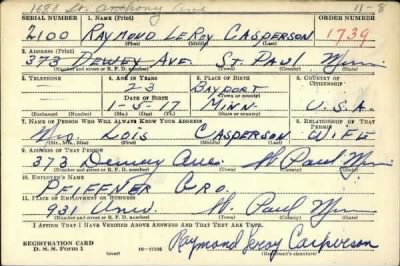 1681 St. Anthony Ave 11-8
SERIAL NUMBER 1. NAME (Print) ORDER NUMBER
2100 RAYMOND LEROY CASPERSON 1739
(First) (Middle) (Last)
2. ADDRESS (Print)
373 DEWEY AVE. ST. PAUL Minn
(Number and street or R. F. D. number) (Town) (County) (State)
3. TELEPHONE 4. AGE IN YEARS 5. PLACE OF BIRTH 6. COUNTRY OF CITIZENSHIP
— 23 BAYPORT
DATE OF BIRTH (Town or county)
1-5-17 MINN. U.S.A.
(Exchange) (Number) (Mo.) (Day) (Yr.) (State or country)
7. NAME OF PERSON WHO WILL ALWAYS KNOW YOUR ADDRESS 8. RELATIONSHIP OF THAT PERSON
Mrs. LOIS CASPERSON WIFE
(Mr., Mrs., Miss) (First) (Middle) (Last)
9. ADDRESS OF THAT PERSON
373 Dewey Ave St Paul Minn
(Number and street or R. F. D. number) (Town) (County) (State)
10. EMPLOYER'S NAME
PFIFFNER GRO.
11. PLACE OF EMPLOYMENT OR BUSINESS
931 Univ. St. Paul Minn
(Number and street or R. F. D. number) (Town) (County) (State)
I AFFIRM THAT I HAVE VERIFIED ABOVE ANSWERS AND THAT THEY ARE TRUE.
REGISTRATION CARD
D. S. S. Form 1 (over) 16-17105 Raymond Leroy Casperson
(Registrant's signature)